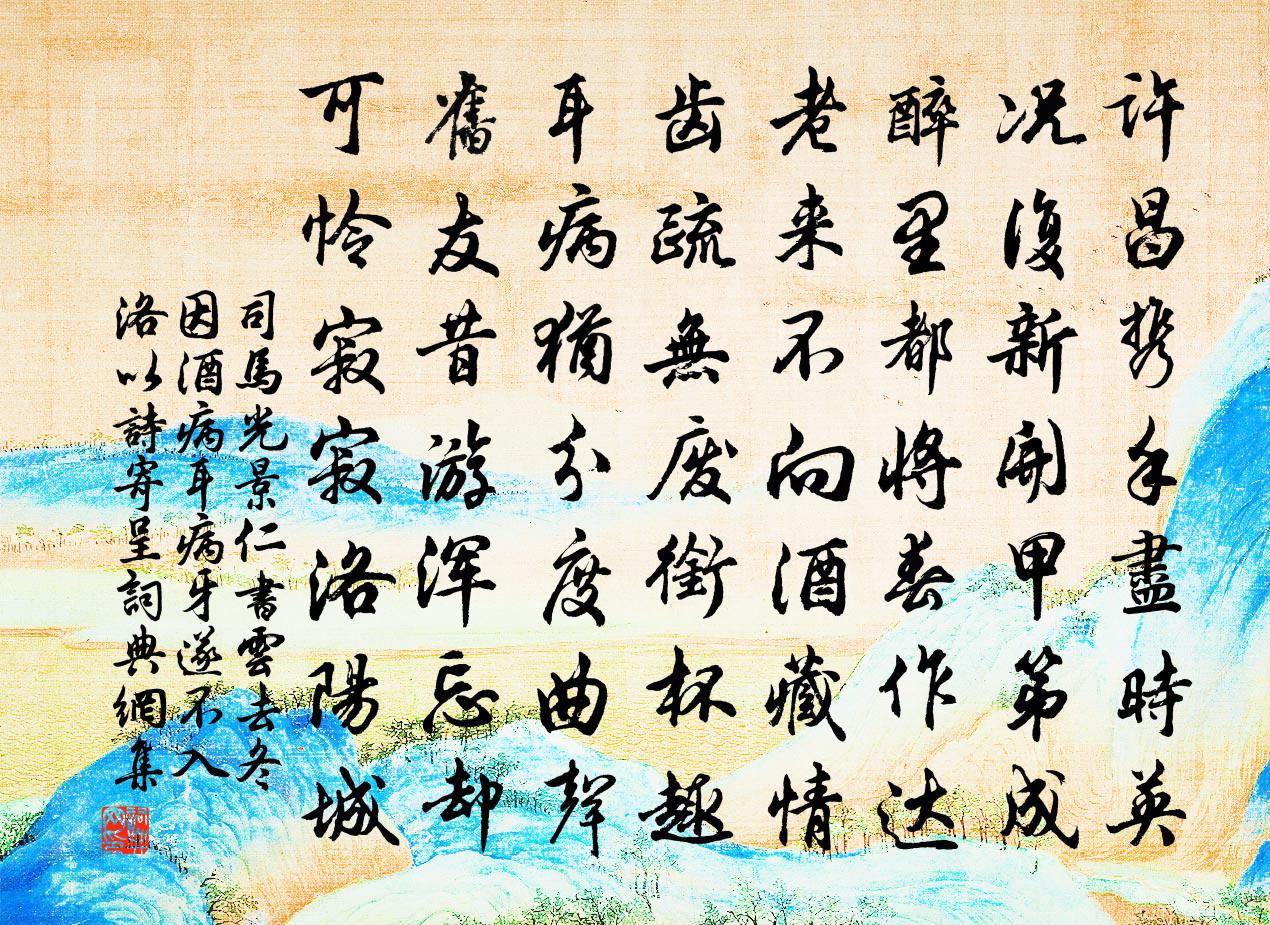 许昌携手盡時英
况復新開甲第成
醉里都將春作达
老来不向酒藏情
齿疏無废銜杯趣
耳病猶分度曲聲
舊友昔游浑忘却
可怜寂寂洛陽城
司馬光景仁書雲去冬
因酒病耳病牙遂不入
洛以詩寄呈詞典網集